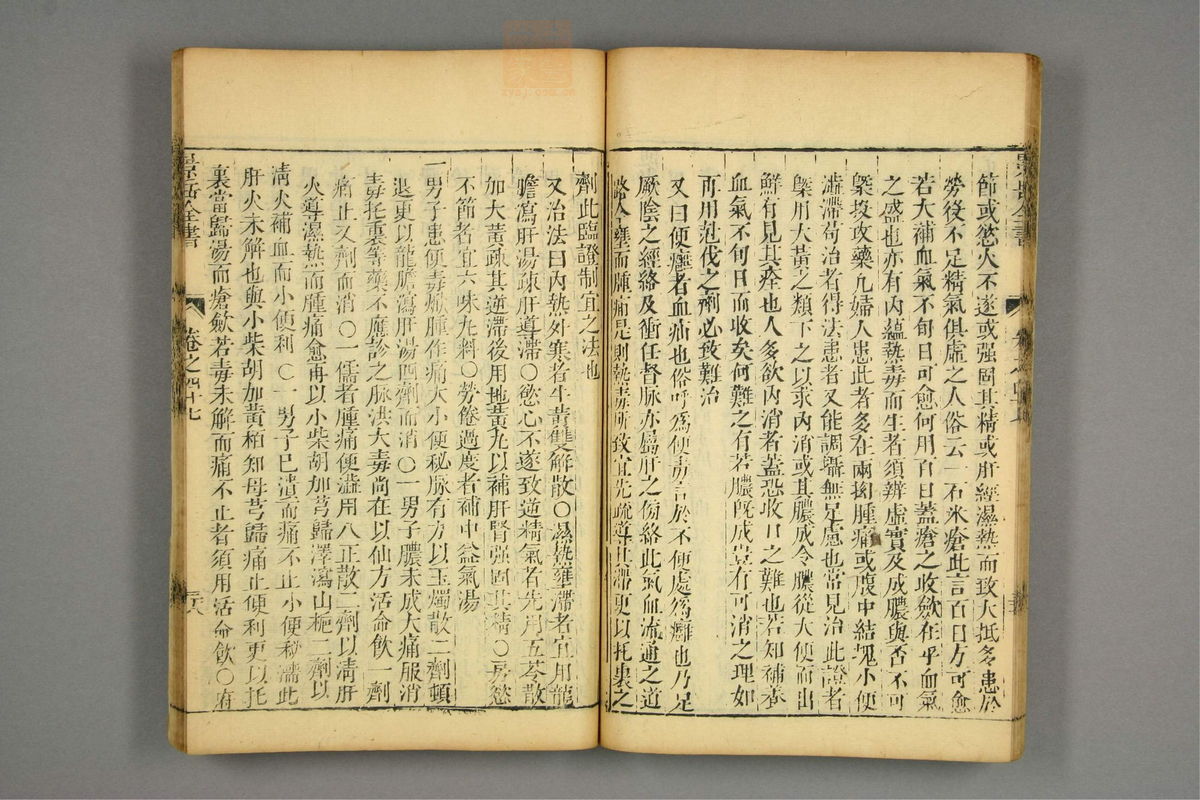 節或慾火不遂或强固其精或肝經濕熱而致大抵多患於
勞役不足精氣俱虛之人俗云一石米瘡此言百日方可愈
若大補血氣不旬日可愈何用百日蓋瘡之收斂在乎血氣
之盛也亦有內蘊熱毒而生者須辨虛實及成膿與否不可
槩投攻藥凡婦人患此者多在兩拗腫痛或腹中結塊小便
澁滯苟治者得法患者又能調攝無足慮也常見治此證者
槩用大黃之類下之以求內消或其膿成令膿從大便而出
鮮有見其痊也人多欲內消者蓋恐收口之難也若知補養
血氣不旬日而收矣何難之有若膿旣成豈有可消之理如
再用尅伐之劑必致難治
又曰便癰者血疝也俗呼為便毒言於不便處爲癰也乃足
厥陰之經絡及衝任督脉亦屬肝之傍絡此氣血流通之道
路今壅而腫痛是則熱毒所致宜先疏導其滯更以托裏之
劑此臨證制宜之法也
又治法曰內熱外寒者牛黃雙解散〇濕熱壅滯者宜用龍
膽瀉肝湯疎肝導滯〇慾心不遂致逆精氣者先用五苓散
加大黃疎其逆滯後用地黃丸以補肝腎强固其精〇房慾
不節者宜六味丸料〇勞倦過度者補中益氣湯
一男子患便毒焮腫作痛大小便秘脉有力以玉燭散二劑頓
退更以龍膽瀉肝湯四劑而消〇一男子膿未成大痛服消
毒托裏等藥不應診之脉洪大毒尚在以仙方活命飲一劑
痛止又劑而消〇一儒者腫痛便澁用八正散二劑以淸肝
火導濕熱而腫痛愈再以小柴胡加芎歸澤瀉山梔二劑以
淸火補血而小便利〇一男子已潰而痛不止小便秘澁此
肝火未解也與小柴胡加黃栢知母芎歸痛止便利更以托
裏當歸湯而瘡斂若毒未解而痛不止者須用活命飲〇府
景岳全書
卷之四十七